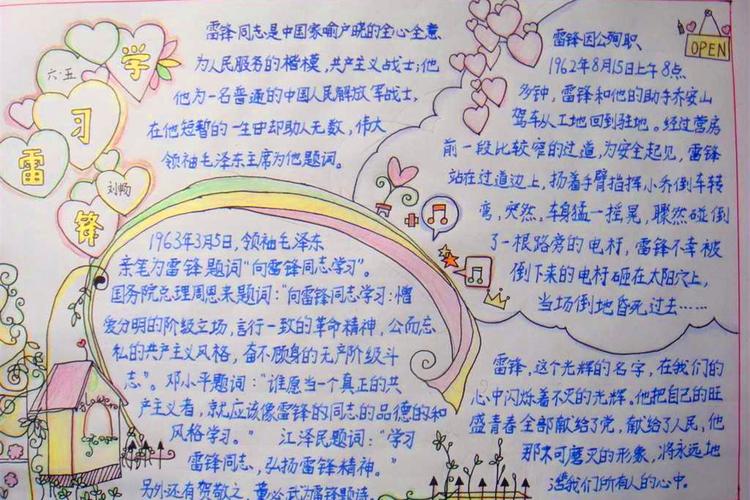 学习雷锋
六·五
刘畅
雷锋同志是中国家喻户晓的全心全意
为人民服务的楷模,共产主义战士;他
他为一名普通的中国人民解放军战士,
在他短暂的一生中却助人无数,伟大
领袖毛泽东主席为他题词。
1963年3月5日,领袖毛泽东
亲笔为雷锋题词“向雷锋同志学习”。
国务院总理周恩来题词:“向雷锋同志学习:憎
爱分明的阶级立场,言行一致的革命精神,公而忘
私的共产主义风格,奋不顾身的无产阶级斗
志”。邓小平题词:“谁愿当一个真正的共
产主义者,就应该像雷锋的同志的品德的和
风格学习。” 江泽民题词:“学习
雷锋同志,弘扬雷锋精神。”
另外还有贺敬之、董必武为雷锋题诗
OPEN
雷锋因公殉职
1962年8月15日上午8点
多钟,雷锋和他的助手乔安山
驾车从工地回到驻地。经过营房
前一段比较窄的过道,为安全起见,雷锋
站在过道边上,扬着手臂指挥小乔倒车转
弯,突然,车身猛一摇晃,骤然碰倒
了一根路旁的电村,雷锋不幸被
倒下来的电村砸在太阳穴上,
当场倒地昏死过去……
雷锋,这个光辉的名字,在我们的
心中闪烁着不灭的光辉。他把自己的旺
盛青春全部献给了党,献给了人民,他
那不可磨灭的形象,将永远地
活我们所有人的心中。